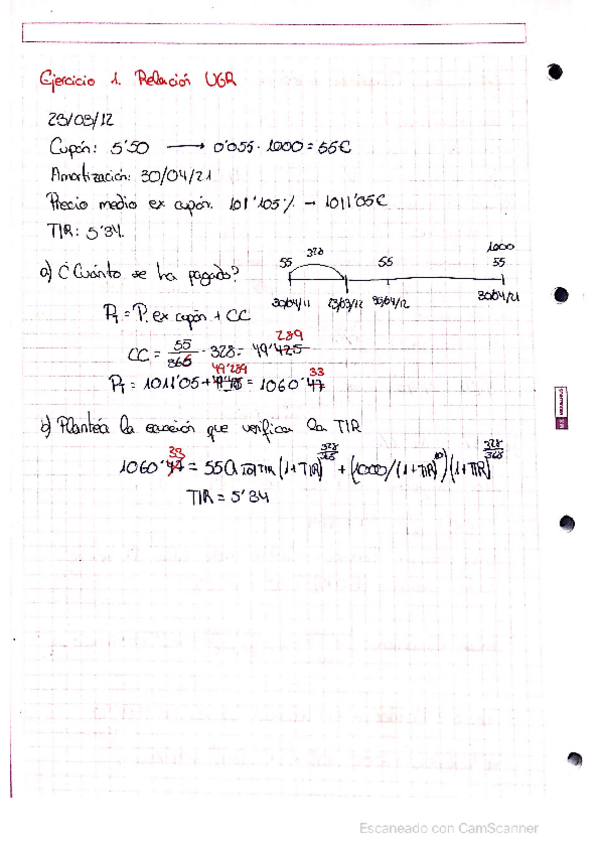 Ejercicio 1. Relación UGR
23/03/12
Cupón: 5'50 → 0'055 · 1000 = 55€
Amortización: 30/04/21
Precio medio ex cupón: 101'105% → 1011'05€
TIR: 5'34.
a) ¿Cuánto se ha pagado?
55 328 55 1000 55
30/04/11 23/03/12 30/04/12 30/04/21
PT = P. ex cupón + CC
289
CC = 55/365 · 328 = 49'425
49'289 33
PT = 1011'05 + = 1060'47
b) Plantéa la ecuación que verifica la TIR
33
1060'47 = 55 a 10 TIR (1+TIR)^328/365 + (1000/(1+TIR)^10)(1+TIR)^328/365
TIR = 5'34
Escaneado con CamScanner